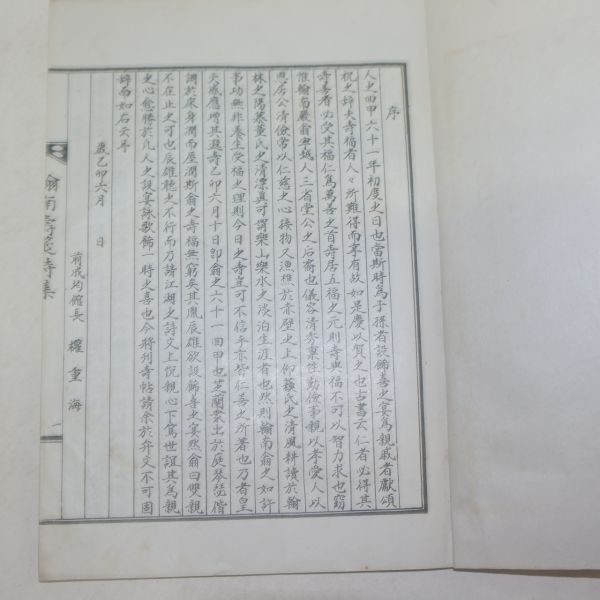 序
人之回甲六十一年初度之日也當斯時爲子孫者設飾喜之宴爲親戚者獻頌
祝之辭夫壽福者人人所難得而享有故如是慶以賀之也古書云仁者必得其
壽善者必受其福仁爲萬善之首壽居五福之元則壽與福不可以智力求也窃
惟翰南嚴翁無越人三省堂公之后裔也儀容清秀稟性勤儉事親以孝愛人以
恩居公清儉常以仁慈之心接物又漁樵於赤壁之上仰蘇氏之清風耕讀於翰
林之陽慕董氏之清漂真可謂樂山樂水之淡泊生涯有也然則翰南翁之如許
事功無非養生受福之理則今日之壽豈可不信乎亦皆仁善之所著也乃者皇
天感應增其遐壽乙卯六月十日卽翁之六十一回甲也芝蘭
於庭琴瑟偕
調於床身潤而屋潤斯翁之壽福無窮矣其胤辰雄欲設飾壽之宴然翁曰雙親
不在止之可也辰雄聽之不行而乃請江湖之詩文上悅親心下篤世誼其爲親
之心愈勝於凡人之設宴詠歌飾一時之喜也今將刊壽帖請余於弁文不可固
辭而如右云耳
歲乙卯六月 日
前成均館長 權重海
翰南壽筵詩集
一